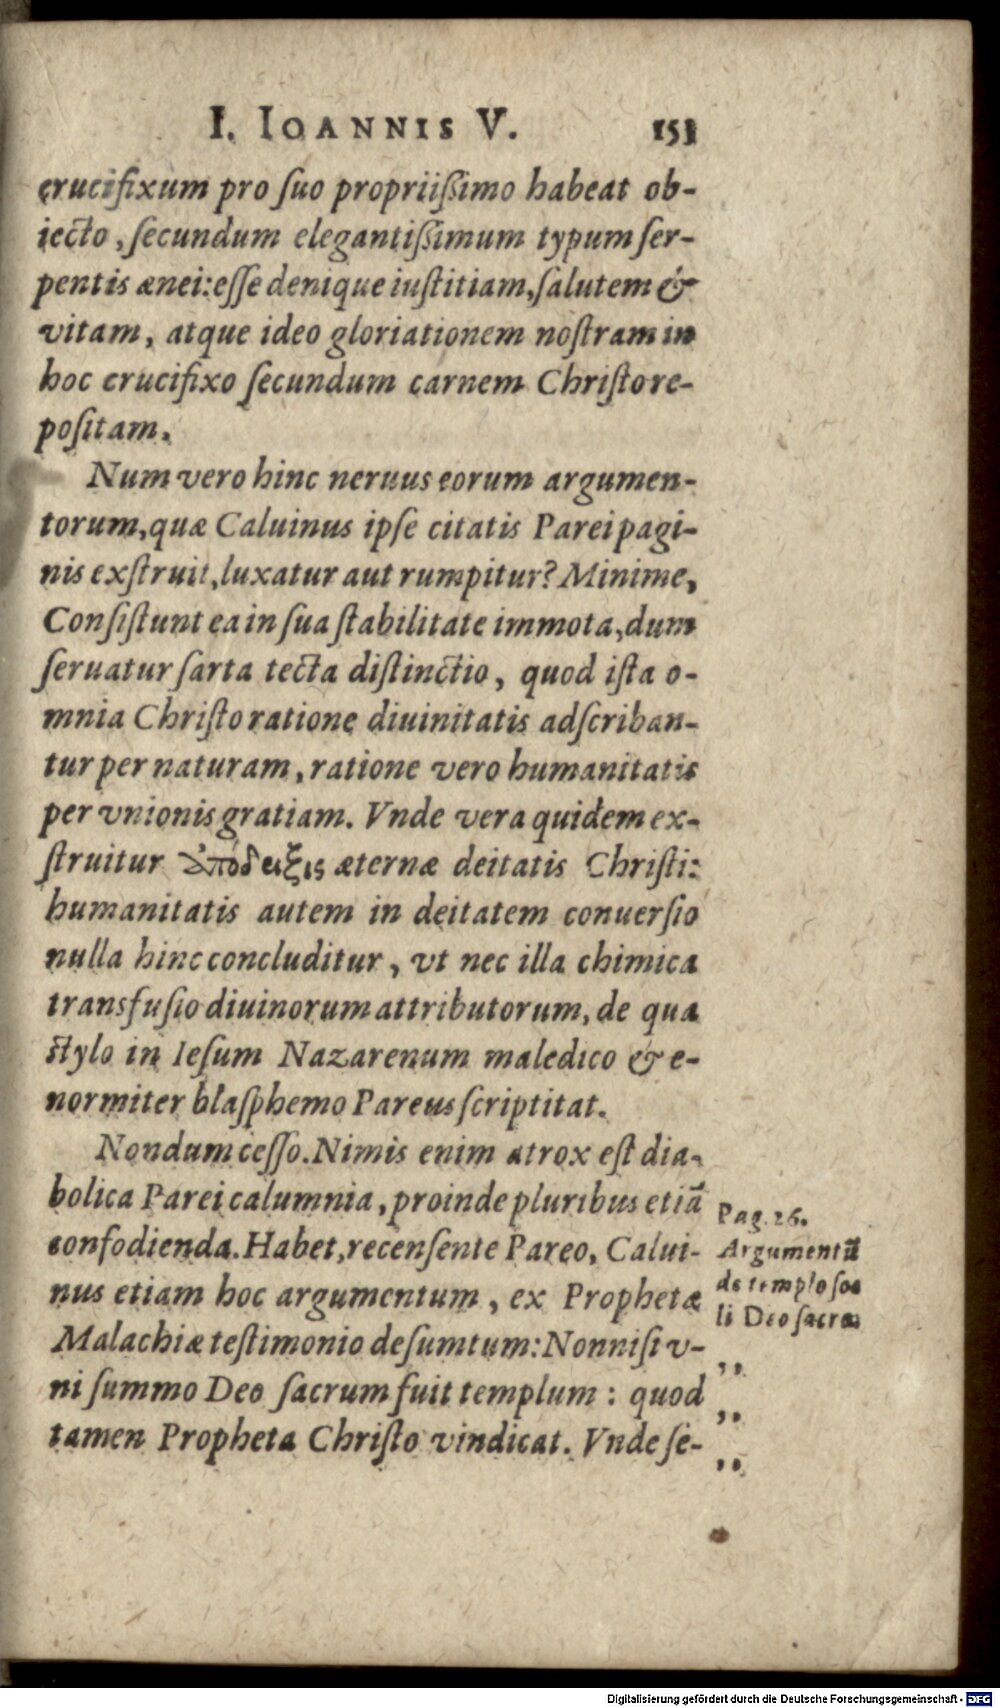 I. IOANNIS V. 153
crucifixum pro ſuo propriiſsimo habeat ob-
iecto, ſecundum elegantiſsimum typum ſer-
pentis ænei: eſſe denique iuſtitiam, ſalutem &
vitam, atque ideo gloriationem noſtram in
hoc crucifixo ſecundum carnem Chriſto re-
poſitam.
Num vero hinc neruus eorum argumen-
torum, quæ Caluinus ipſe citatis Parei pagi-
nis exſtruit, luxatur aut rumpitur? Minime,
Conſiſtunt ea in ſua ſtabilitate immota, dum
ſeruatur ſarta tecta diſtinctio, quod iſta o-
mnia Chriſto ratione diuinitatis adſcriban-
tur per naturam, ratione vero humanitatis
per vnionis gratiam. Vnde vera quidem ex-
ſtruitur ἀπόδειξις æternæ deitatis Chriſti:
humanitatis autem in deitatem conuerſio
nulla hinc concluditur, vt nec illa chimica
transfuſio diuinorum attributorum, de qua
ſtylo in Ieſum Nazarenum maledico & e-
normiter blaſphemo Pareus ſcriptitat.
Nondum ceſſo. Nimis enim atrox eſt dia-
bolica Parei calumnia, proinde pluribus etiã
confodienda. Habet, recenſente Pareo, Calui-
nus etiam hoc argumentum, ex Prophetæ
Malachiæ teſtimonio deſumtum: Nonniſi v-
ni ſummo Deo ſacrum fuit templum: quod
tamen Propheta Chriſto vindicat. Vnde ſe-
Pag. 26.
Argumentũ
de templo ſo-
li Deo ſacro.
,,
,,
,,
Digitalisierung gefördert durch die Deutsche Forschungsgemeinschaft - DFG